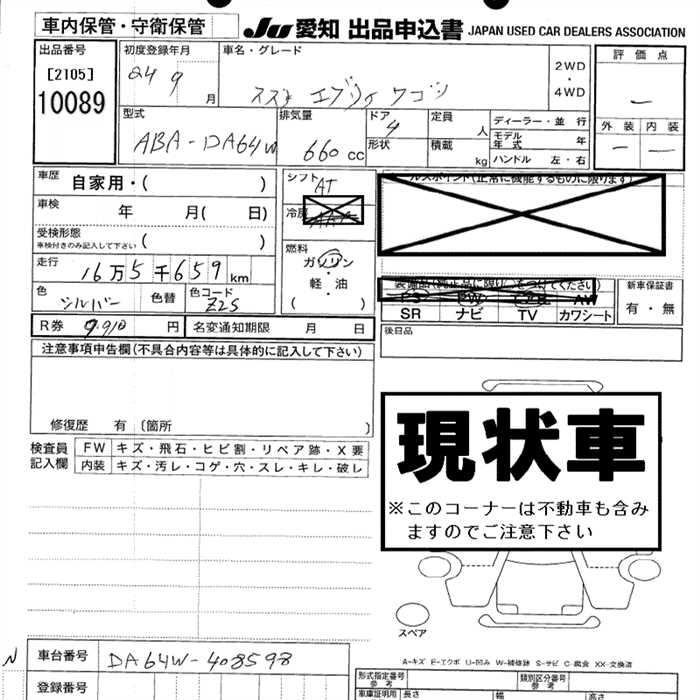 車内保管・守衛保管
JU 愛知 出品申込書 JAPAN USED CAR DEALERS ASSOCIATION
出品番号
[2105]
10089
初度登録年月
24 9 月
車名・グレード
スズキ エブリィ ワゴン
2WD
・
4WD
評価点
—
外装 内装
— —
型式
ABA-DA64W
排気量
660 cc
ドア
4
形状
定員
人
積載
kg
ディーラー・並行
モデル年式 年
ハンドル 左・右
車歴 自家用・( )
車検 年 月( 日)
受検形態
車検付きのみ記入して下さい ( )
走行 16万5千659km
色 シルバー 色替
色コード Z2S
シフト AT
冷房
燃料
ガソリン
・
軽・油
( )
R券 9,910 円
名変通知期限 月 日
(正常に機能するものに限ります)
装備品(純正品に限り○をつけてください)
SR ナビ TV カワシート
新車保証書
有・無
後日品
注意事項申告欄(不具合内容等は具体的に記入して下さい)
修復歴 有 〔箇所 〕
検査員記入欄
FW キズ・飛石・ヒビ割・リペア跡・X要
内装 キズ・汚レ・コゲ・穴・スレ・キレ・破レ
現状車
※このコーナーは不動車も含み
ますのでご注意下さい
スペア
A-キズ E-エクボ U-凹み W-補修跡 S-サビ C-腐食 XX-交換済
N 車台番号 DA64W-408598
登録番号
形式指定番号
参考
類別区分番号
参考
車庫証明用 長さ 幅 高さ